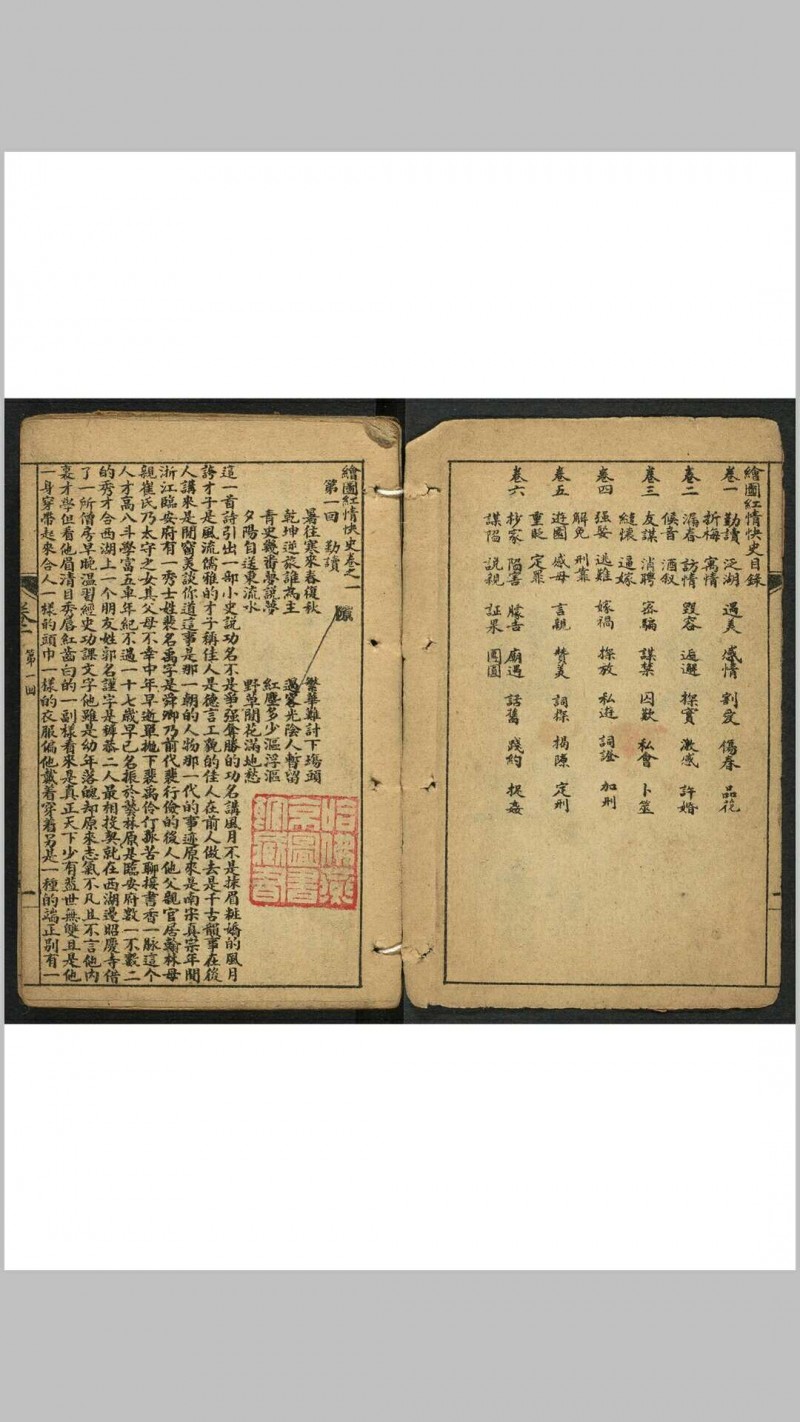 繪圖紅情快史目錄
卷一 勤讀 泛湖 遇美 感情 割愛 傷春 品花
折梅 寓情
卷二 漏春 訪情 毀容 逅邂 探實 激感 許婚
候音 酒叙
卷三 友謀 消聘 密騙 謀禁 囚歎 私會 卜筮
縫懷 逼嫁
卷四 强娶 逃難 嫁禍 探放 私逰 詞證 加刑
解免 刑靠
卷五 遊園 感母 言親 贊美 詞探 揭隙 定刑
重貶 定罪
卷六 抄家 陷害 牓吿 廟遇 話舊 踐約 捉姦
謀陷 説親 証果 團圓
繪圖紅情快史卷之一
第一回 勤讀
暑往寒來春復秋 繁華難計下塲頭
乾坤逆旅誰為主 光陰人暫留
青史幾番夢説夢 紅塵多少漚浮漚
夕陽自送東流水 野草閒花滿地愁
這一首詩引出一部小史説功名不是爭强奪勝的功名講風月不是抹眉粧嬌的風月
誇才子是風流儒雅的才子稱佳人是德言工貌的佳人在前人做去是千古韻事在後
人講來是閒窗美談你道這事是那一朝的人物那一代的事迹原來是南宋真宗年間
浙江臨安府有一秀士姓裴名禹字是舜卿乃前代裴行儉的後人他父親官居翰林母
親崔氏乃太守之女其父母不幸中年早逝單拋下裴禹伶仃孤苦聊接書香一脈這个
人才高八斗學富五車年紀不過一十七歲早已名振於藝林原是臨安府數一不數二
的秀才合西湖上一个朋友姓郭名謹字是慕恭二人最相投契就在西湖邊昭慶寺借
了一所僧房早晚温習經史功課文字他雖是幼年落魄却原來志氣不凡且不言他內
裏才學但看他眉清目秀唇紅齒白的一副樣看來是真正天下少有蓋世無雙且是他
一身穿帶起來合人一樣的頭巾一樣的衣服偏他戴着穿着另是一種的端正别有一
卷一 第一回
一